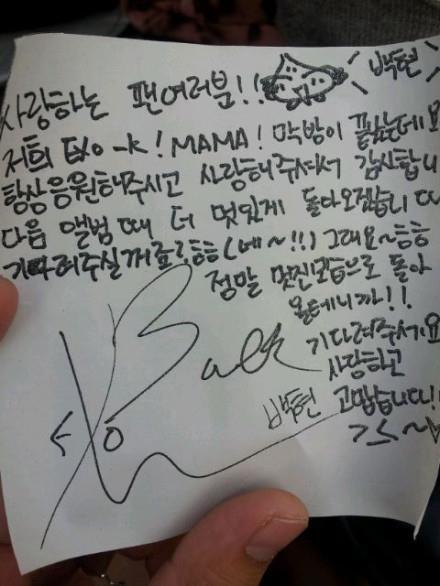 사랑하는 팬여러분!! 백현
저희 EXO-K! MAMA! 막방이 끝났는데요
항상응원해주시고 사랑해주셔서 감사합니
다음 앨범때 더 멋있게 돌아오겠습니다
기다려주실꺼죠?흠흠(네~!!) 그래요~흠흠
정말 멋진모습으로 돌아
올테니까!!
기다려주세요
사랑하고
백현 고맙습니다!
>3<~♡
Baek